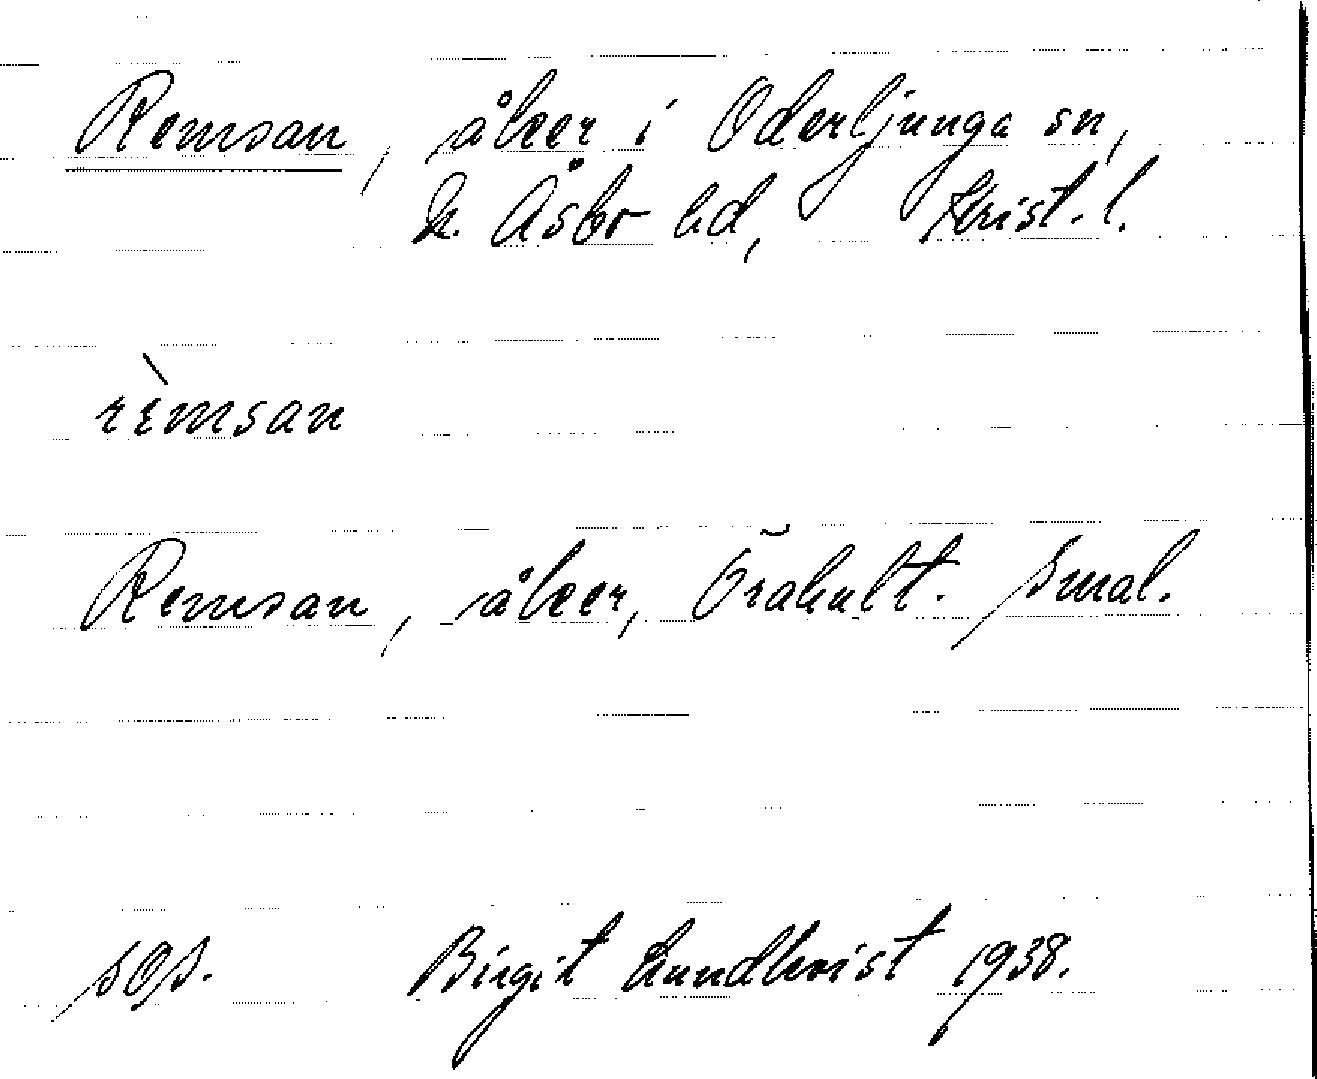 Remsan, åker i Oderljunga sn,
N. Åsbo hd, Krist. l.
rèmsan
Remsan, åker, Örahult. Smal.
sOs. Birgit Lundkvist 1938.